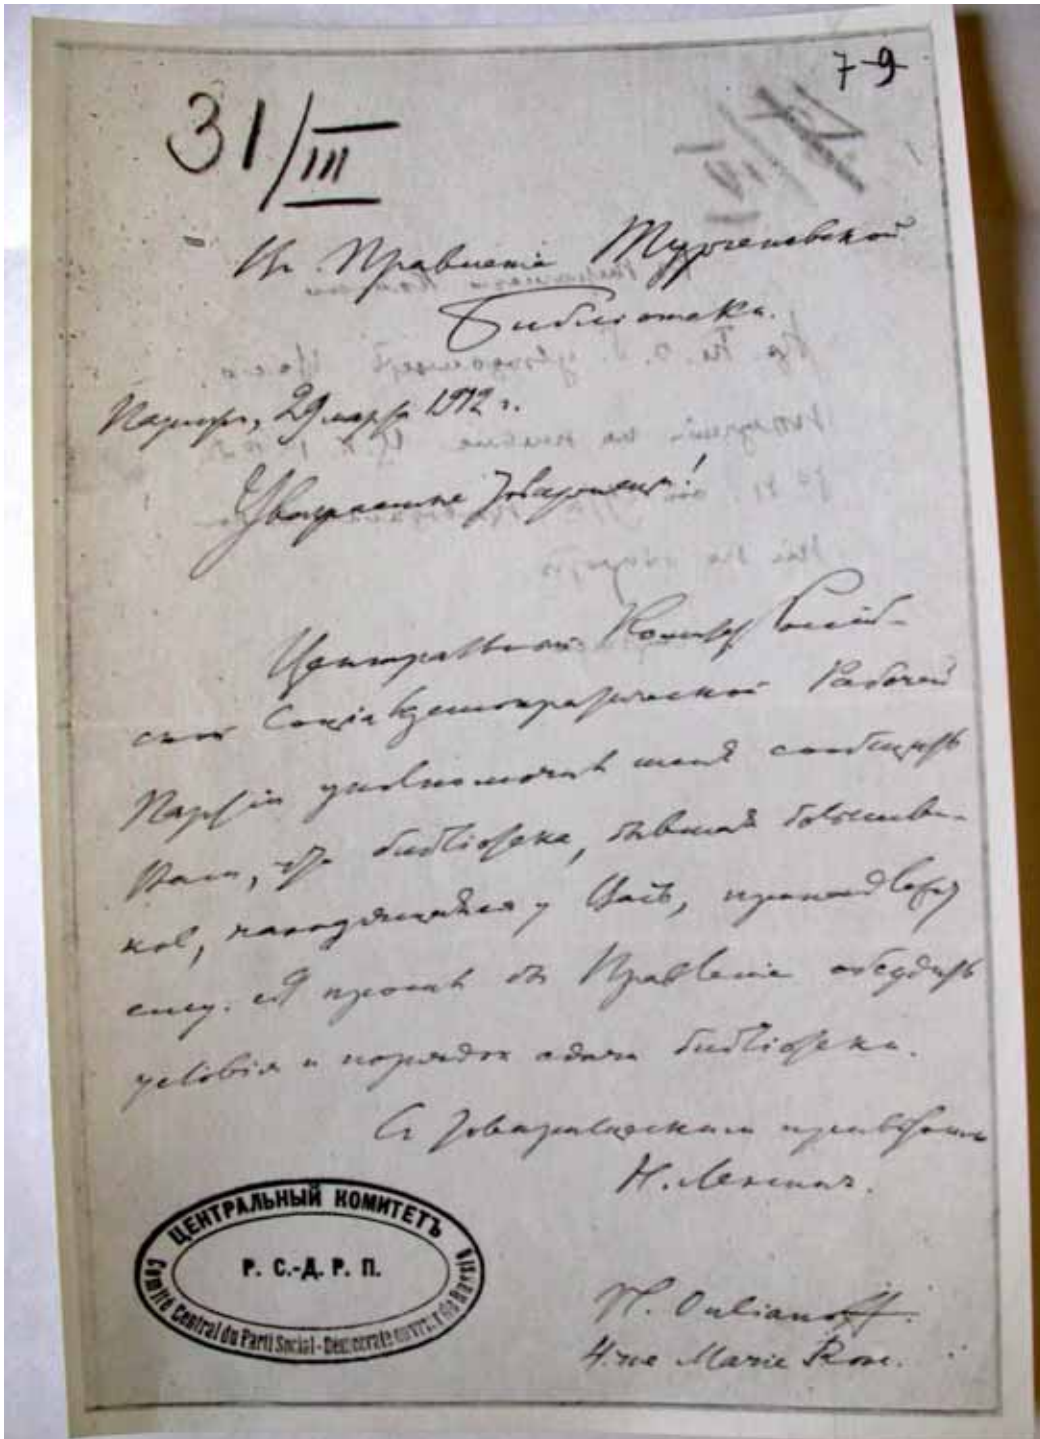 7-9
31/III
Въ Правленiе Тургеневской
Библiотеки.
Парижъ, 29 марта 1912 г.
Уважаемые товарищи!
Центральный Комитет Россiй-
ской Соцiалдемократической Рабочей
Партiи уполномочил меня сообщить
Вам, что библiотека, бывшая большеви-
ков, находящаяся у Васъ, принадлежит
ему. Я просил бы Правленiе обсудить
условiя и порядок сдачи библiотеки.
С товарищеским приветом
Н. Ленин.
ЦЕНТРАЛЬНЫЙ КОМИТЕТЪ
Р. С.-Д. Р. П.
Comité Central du Parti Social-Démocrate ouvrier de Russie
Oulianoff.
4. rue Marie Rose.